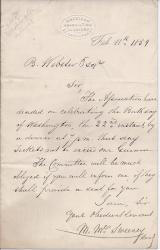 AMERICAN
ASSOCIATION
Feb 11th 1889
B. Webster Esqr
Sir
The Association have
decided on celebrating the Birthday
of Washington, the 22nd instant, by
a dinner at 7 p.m. that day
Tickets not to exceed one Guinea.
The Committee will be much
obliged if you will inform me if they
shall provide a seat for you
I am, Sir
Your Obedient Servant
M. Mc Sweeney